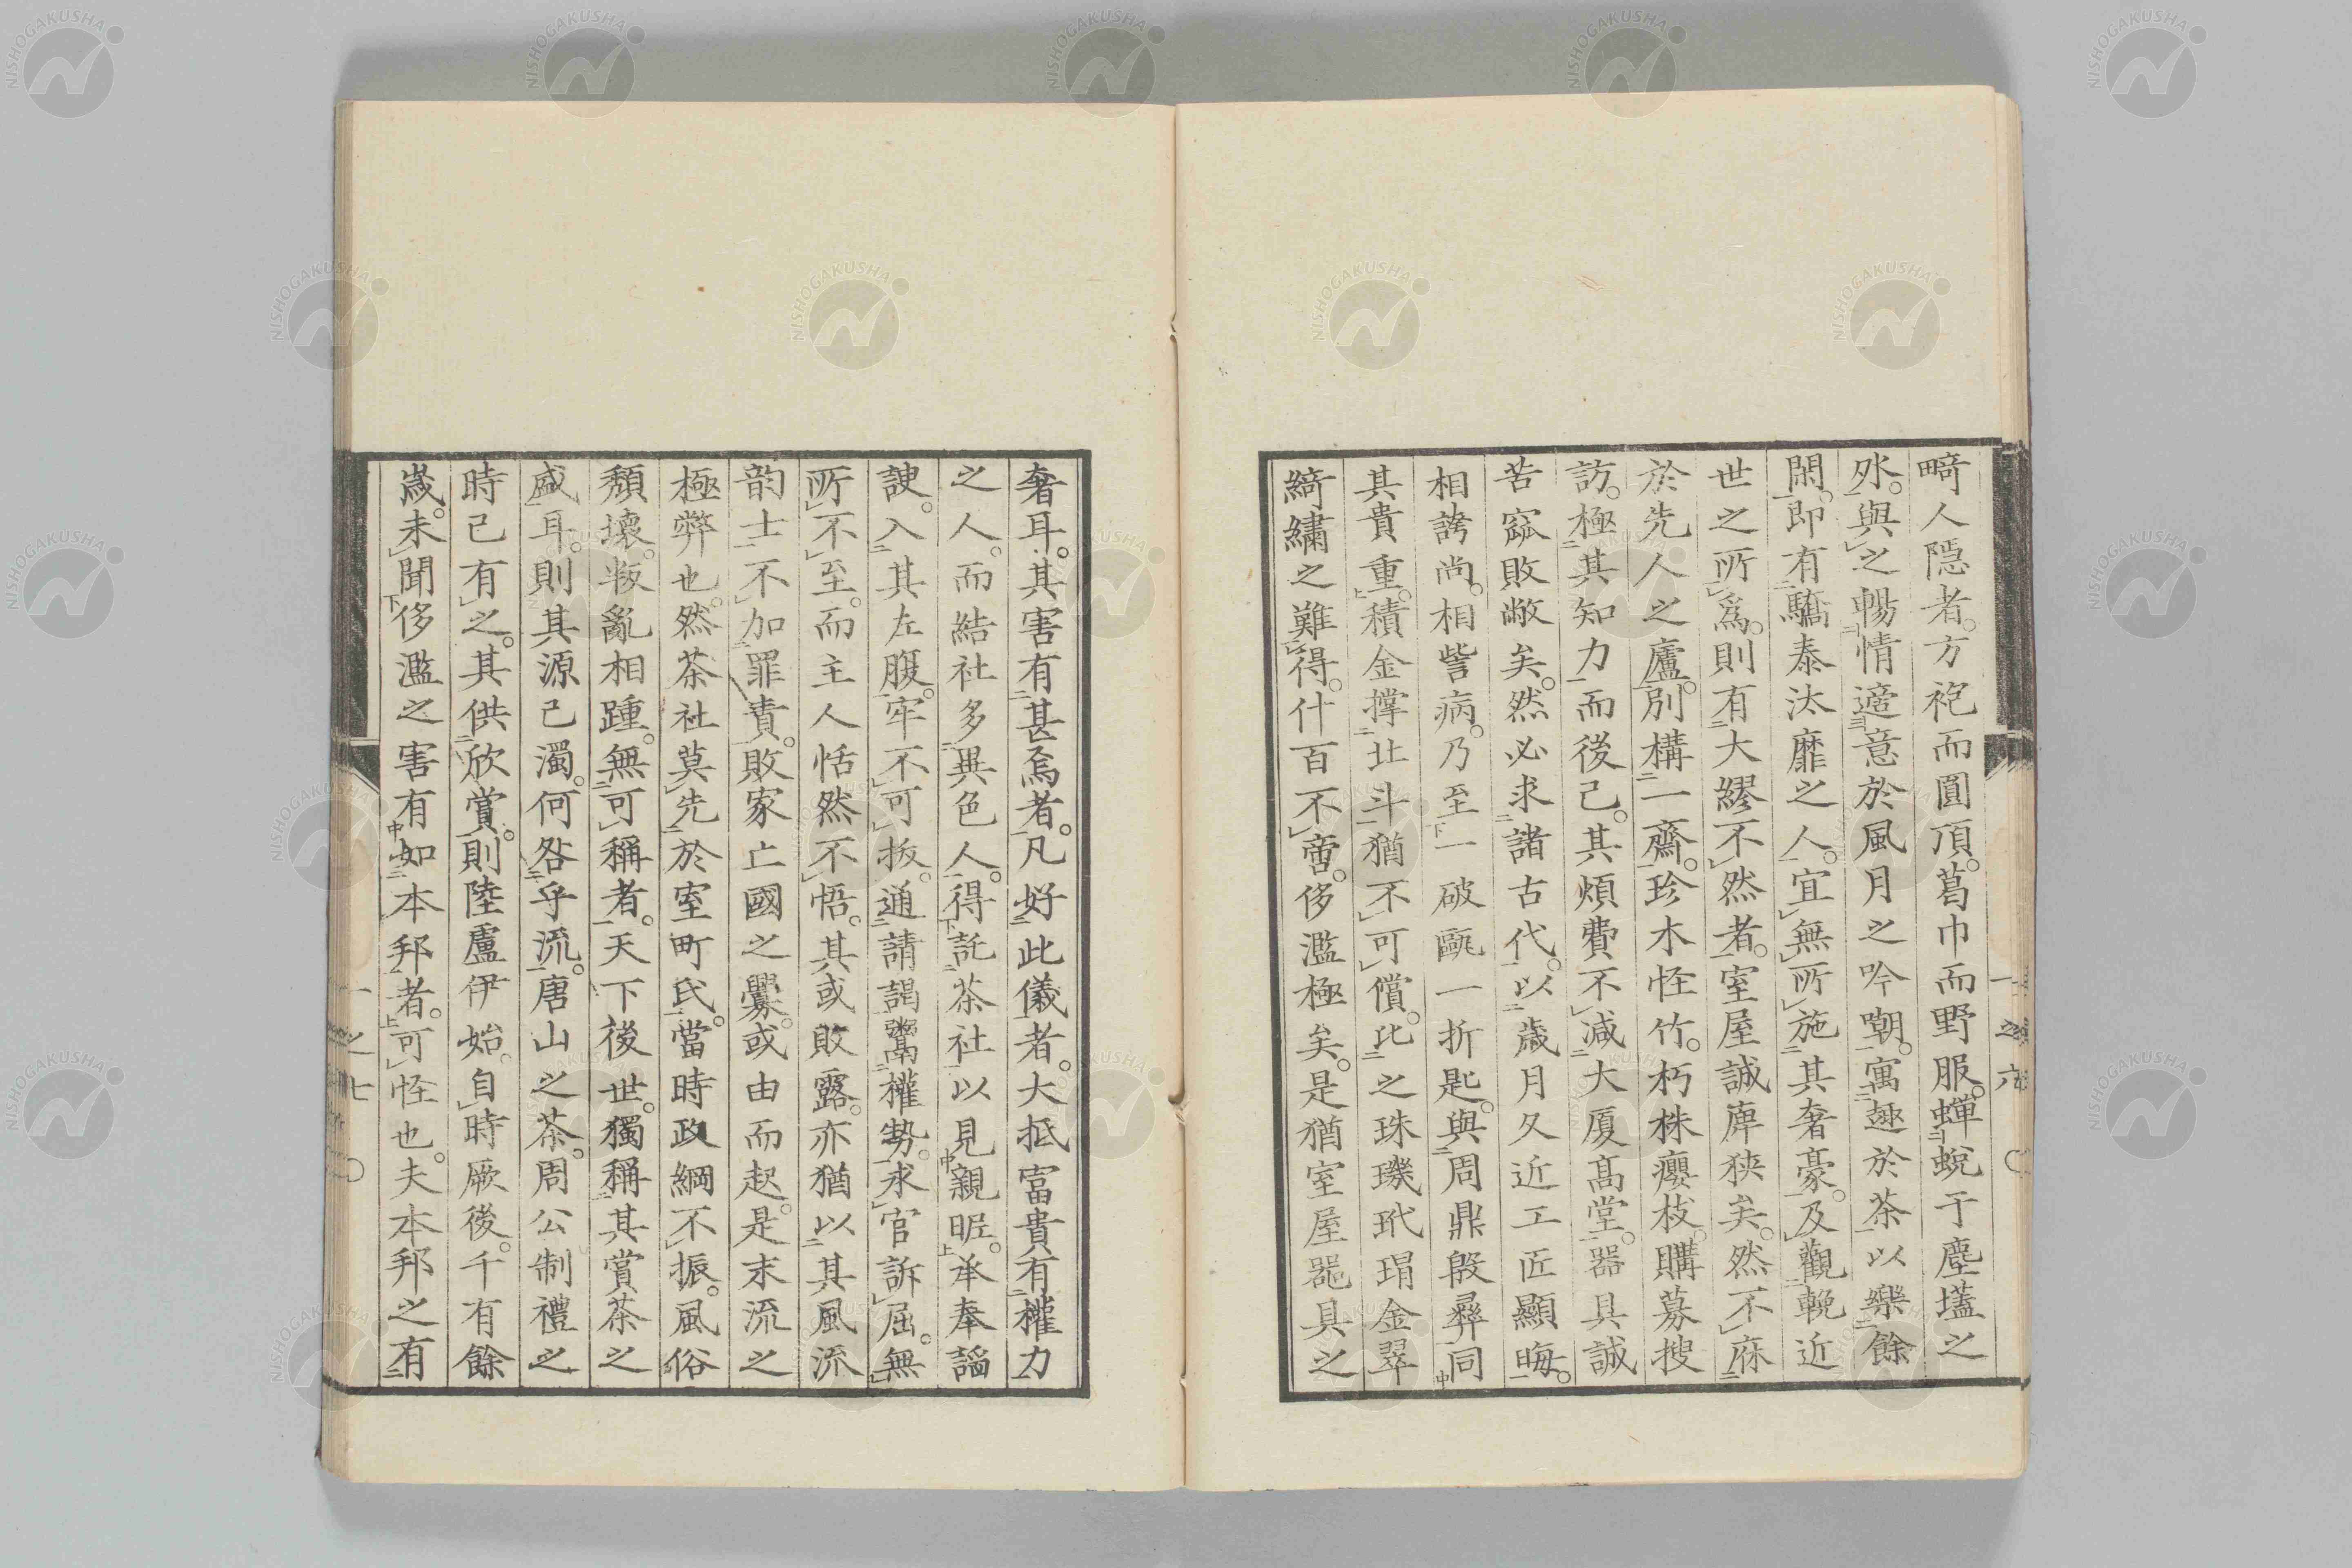 畸人隱者。方袍而圓頂。葛巾而野服。蟬蛻于塵壒之
外。與之暢情適意於風月之吟嘲。寓趣於茶以樂餘
閑。即有驕泰汰靡之人。宜無所施其奢豪。及觀輓近
世之所爲。則有大繆不然者。室屋誠庳狹矣。然不庥
於先人之廬。別構一齋。珍木怪竹。朽株癭枝。購募搜
訪。極其知力而後已。其煩費不減大厦髙堂。器具誠
苦窳敗敝矣。然必求諸古代。以歲月久近工匠顯晦。
相誇尚。相訾病。乃至一破甌一折匙。與周鼎殷彝同
其貴重。積金撐北斗猶不可償。比之珠璣玳瑁金翠
綺繡之難得。什百不啻。侈濫極矣。是猶室屋器具之
奢耳。其害有甚焉者。凡好此儀者。大抵富貴有權力
之人。而結社多異色人。得託茶社以見親昵。承奉謟
諛。入其左腹。牢不可扳。通請謁鬻權勢。求官訴屈。無
所不至。而主人恬然不悟。其或敗露。亦猶以其風流
韵士不加罪責。敗家亡國之釁。或由而起。是末流之
極弊也。然茶社莫先於室町氏。當時政綱不振。風俗
頽壞。叛亂相踵。無可稱者。天下後世。獨稱其賞茶之
盛耳。則其源已濁。何咎乎流。唐山之茶。周公制禮之
時已有之。其供欣賞。則陸盧伊始。自時厥後。千有餘
歲。未聞侈濫之害有如本邦者。可怪也。夫本邦之有
一之六
一之七
NISHOGAKUSHA